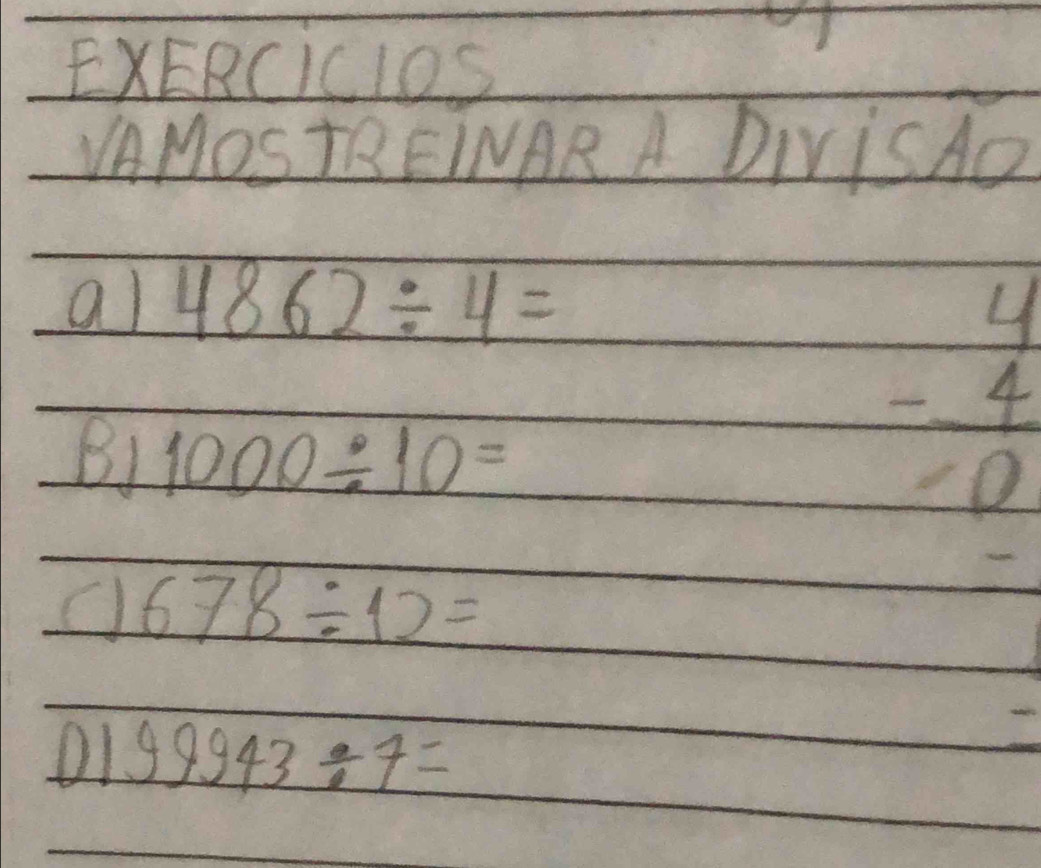 EXERCÍCIOS
VAMOS TREINAR A DIVISÃO
a) 4862 ÷ 4 =
4
- 4
B) 1000 ÷ 10 =
0
-
C) 678 ÷ 12 =
-
D) 99943 ÷ 7 =